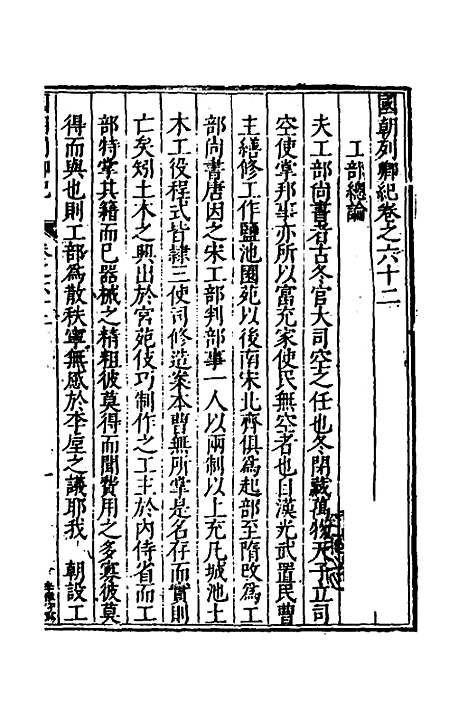 國朝列卿紀卷之六十二
工部總論
夫工部尚書者古冬官大司空之任也冬閉藏萬物天子立司
空使掌邦事亦所以富充家使民無空者也自漢光武置民曹
主繕修工作鹽池園苑以後南宋北齊俱為起部至隋改為工
部尚書唐因之宋工部判部事一人以兩制以上充凡城池土
木工役程式皆隸三使司修造案本曹無所掌是名存而實則
亡矣矧土木之興出於宮苑伎巧制作之工主於內侍省而工
部特掌其籍而已器械之精粗彼莫得而聞費用之多寡彼莫
得而與也則工部為散秩寧無感於李垕之議耶我　朝設工